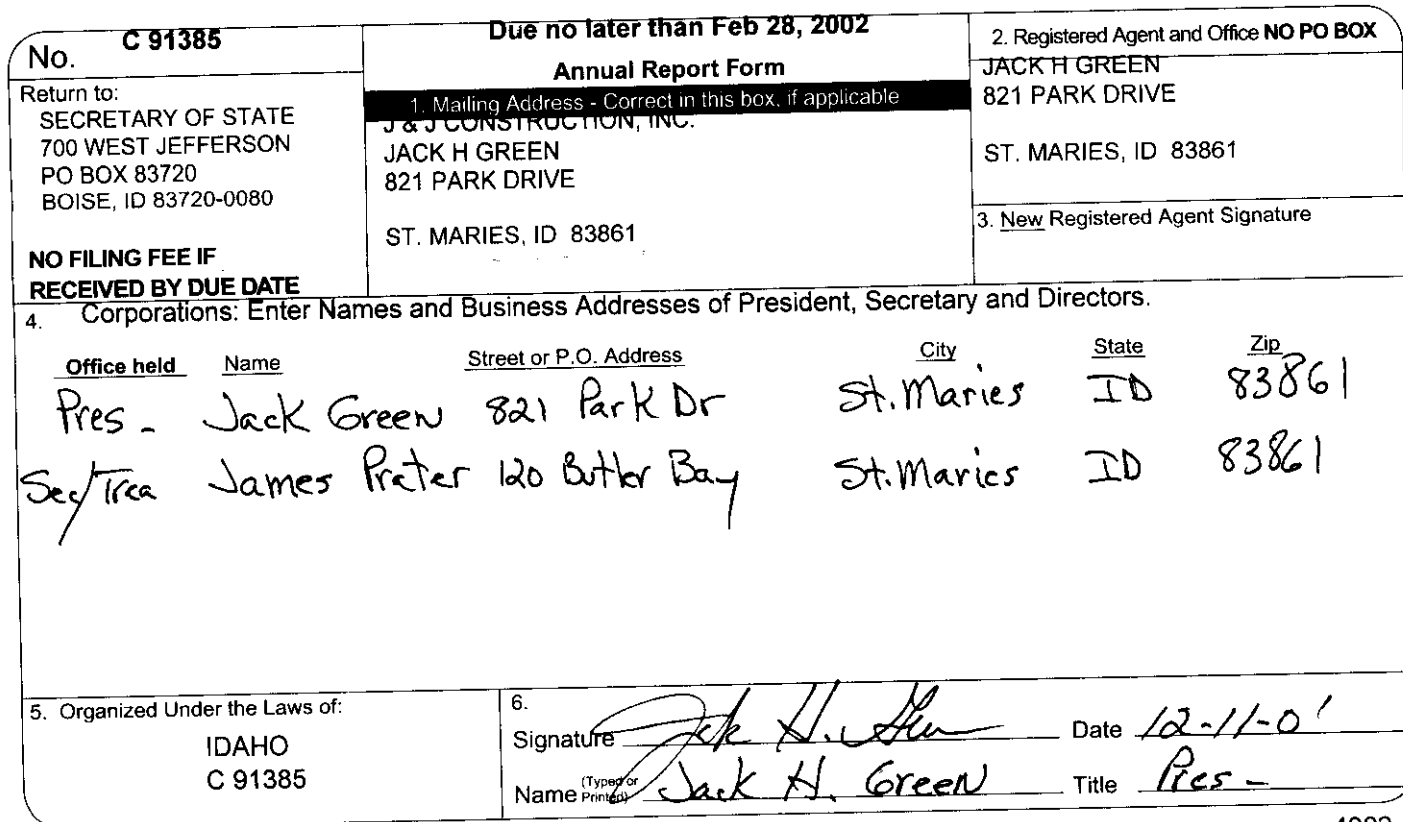 No. C 91385
Return to:
SECRETARY OF STATE
700 WEST JEFFERSON
PO BOX 83720
BOISE, ID 83720-0080
NO FILING FEE IF
RECEIVED BY DUE DATE
Due no later than Feb 28, 2002
Annual Report Form
1. Mailing Address - Correct in this box, if applicable
J & J CONSTRUCTION, INC.
JACK H GREEN
821 PARK DRIVE
ST. MARIES, ID 83861
2. Registered Agent and Office NO PO BOX
JACK H GREEN
821 PARK DRIVE
ST. MARIES, ID 83861
3. New Registered Agent Signature
4. Corporations: Enter Names and Business Addresses of President, Secretary and Directors.
Office held Name Street or P.O. Address City State Zip
Pres - Jack Green 821 Park Dr St. Maries ID 83861
Sec/Trea James Preter 120 Butler Bay St. Maries ID 83861
5. Organized Under the Laws of:
IDAHO
C 91385
6.
Signature Jack H. Green Date 12-11-01
Name (Typed or Printed) Jack H. Green Title Pres -